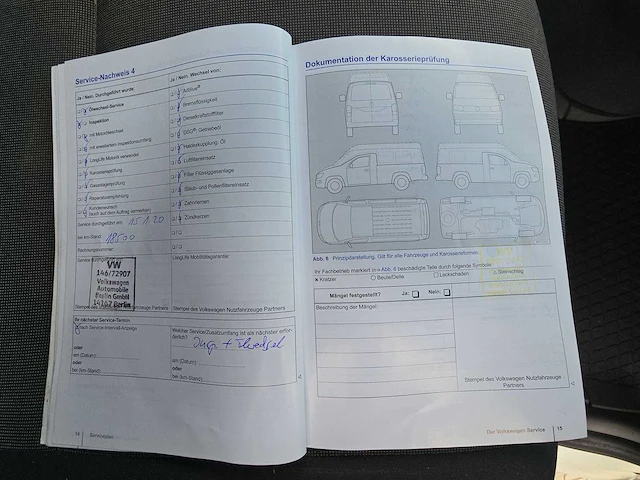 Service-Nachweis 4
Ja / Nein Durchgeführt wurde:
Ölwechsel-Service
Inspektion
mit Motorölwechsel
mit erweitertem Inspektionsumfang
LongLife Motoröl verwendet
Karosserieprüfung
Gasanlagenprüfung
Reparaturempfehlung
Kundenwunsch
(auch auf dem Auftrag vermerken)
Service durchgeführt am: 15.1.20
bei km-Stand: 18500
Rechnungsnummer:
VW
146/72907
Volkswagen
Automobile
Berlin GmbH
14167 Berlin
Ja / Nein Wechsel von:
AdBlue®
Bremsflüssigkeit
Dieselkraftstofffilter
DSG®: Getriebeöl
Haldexkupplung: Öl
Luftfiltereinsatz
Filter Flüssiggasanlage
Staub- und Pollenfiltereinsatz
Zahnriemen
Zündkerzen
LongLife Mobilitätsgarantie:
Stempel des Volkswagen Nutzfahrzeuge Partners
Ihr nächster Service-Termin:
nach Service-Intervall-Anzeige
oder
am (Datum):
oder
bei (km-Stand):
Welcher Service/Zusatzumfang ist als nächster erfor-
derlich?
am (Datum):
oder
bei (km-Stand):
14 Serviceplan
Dokumentation der Karosserieprüfung
Abb. 6 Prinzipdarstellung. Gilt für alle Fahrzeuge und Karosserieformen.
Ihr Fachbetrieb markiert in Abb. 6 beschädigte Teile durch folgende Symbole:
× Kratzer ○ Beule/Delle □ Lackschaden △ Steinschlag
Mängel festgestellt? Ja: Nein:
Beschreibung der Mängel:
Stempel des Volkswagen Nutzfahrzeuge
Partners
Der Volkswagen Service 15